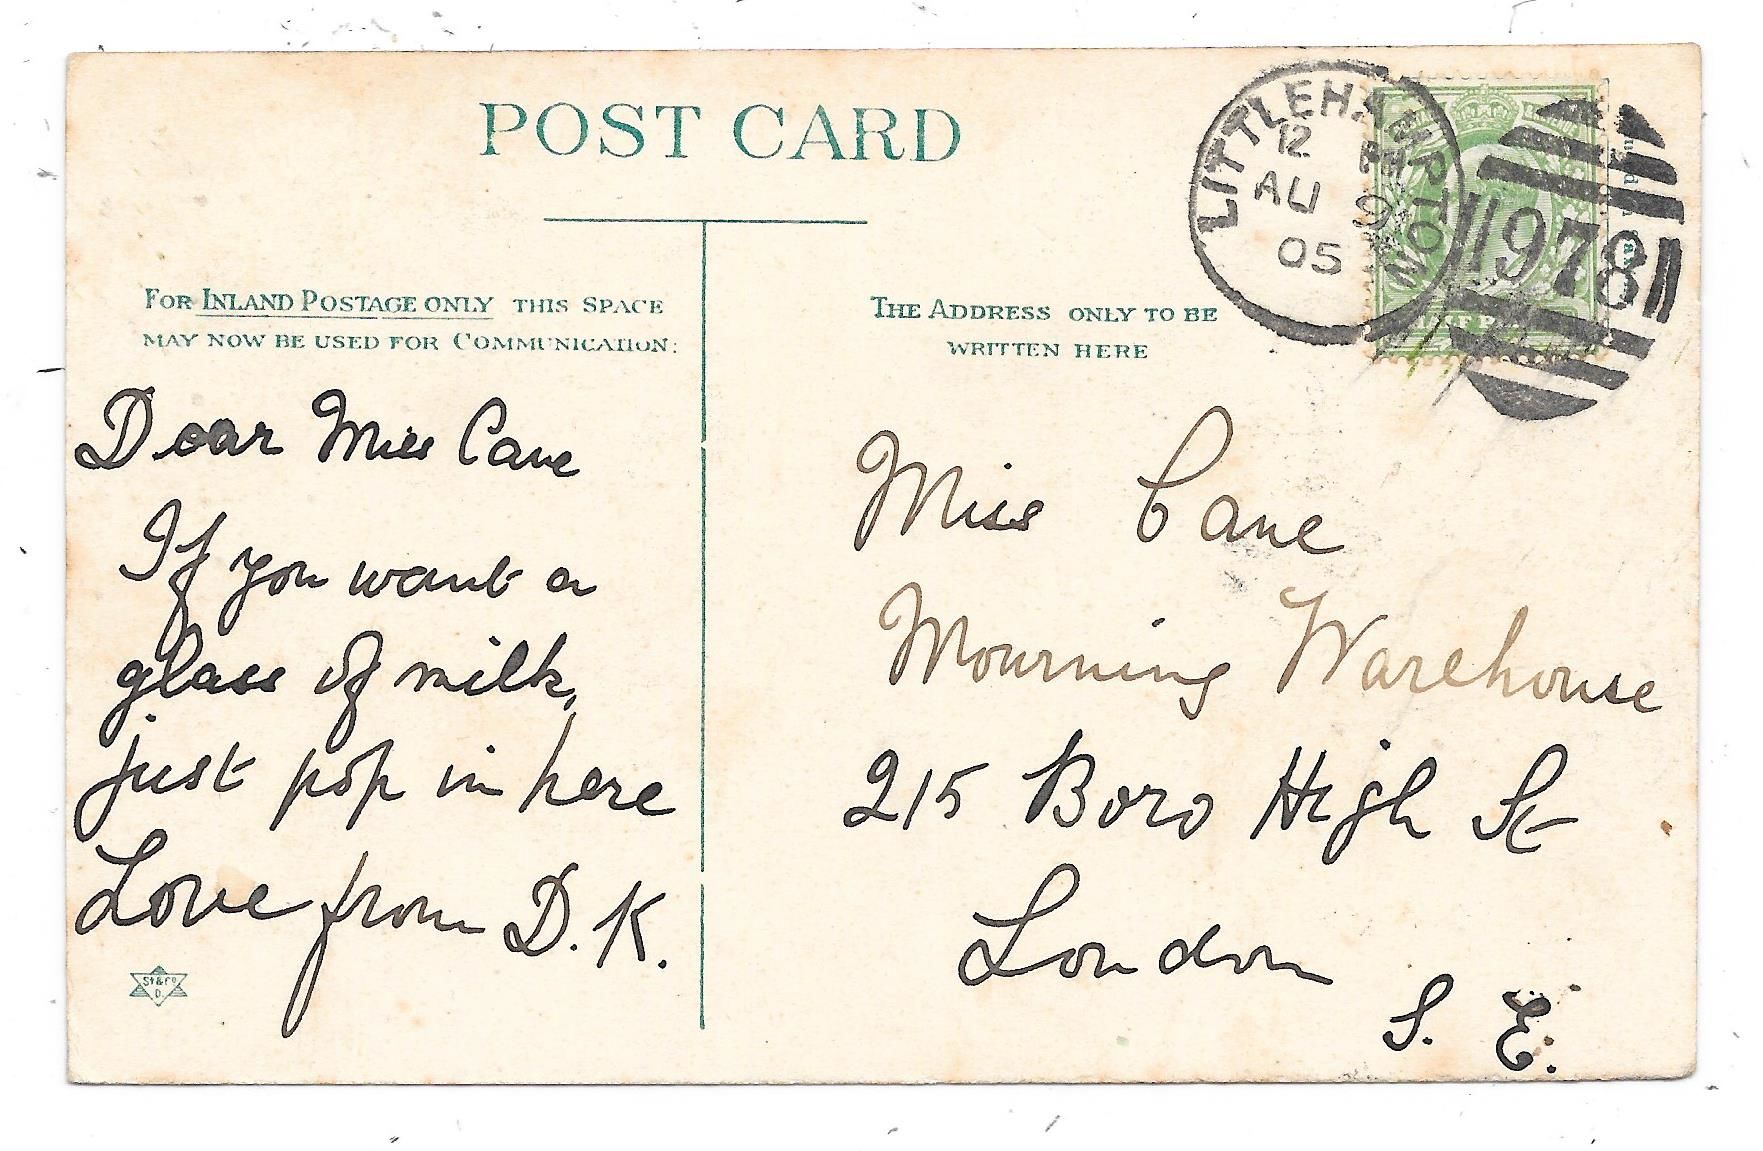 POST CARD
FOR INLAND POSTAGE ONLY THIS SPACE
MAY NOW BE USED FOR COMMUNICATION:
THE ADDRESS ONLY TO BE
WRITTEN HERE
LITTLEHAMPTON
12
AU 9
05
978
HALF P
Dear Miss Cane
If you want a
glass of milk,
just pop in here
Love from D.K.
St & Co
D.
Miss Cane
Mourning Warehouse
215 Boro High St
London
S. E.